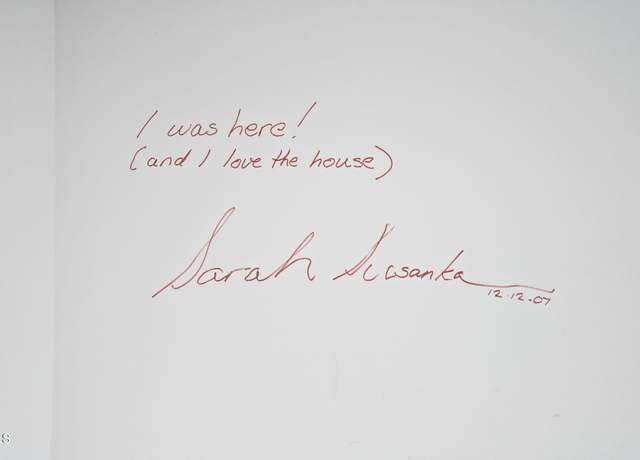 I was here!
(and I love the house)
Sarah Susanka
12.12.07
s